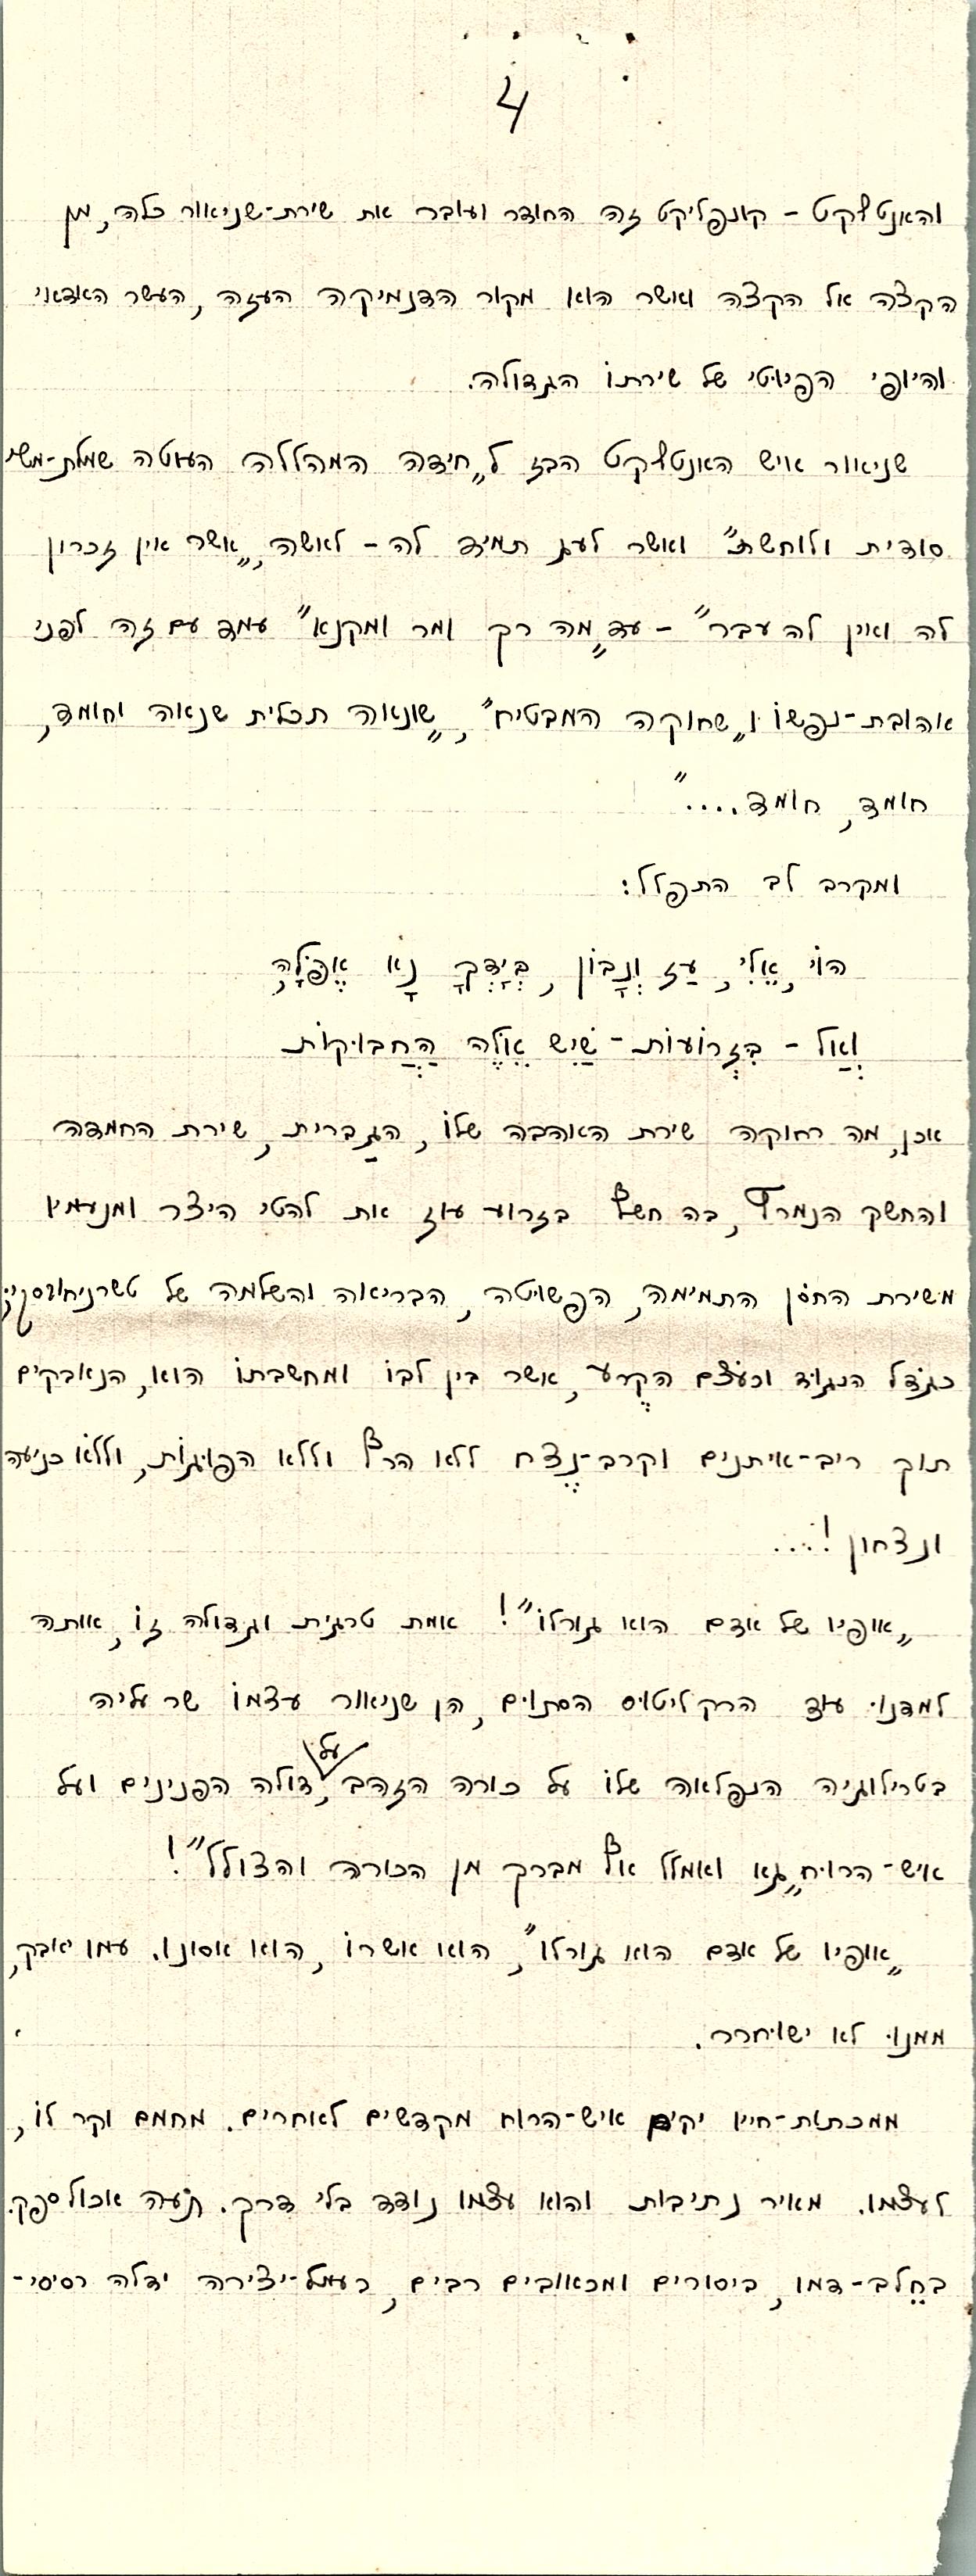 4
והאנטלקט - קונפליקט זה החודר ועובר את שירת-שניאור כלה, מן
הקצה אל הקצה ואשר הוא מקור הדנמיקה העזה, העשר האידאי
והיופי הפיוטי של שירתוֹ הגדולה.
שניאור איש האנטלקט הבז ל„חידה המהללה העוטה שמלת-משי
סודית ולוחשת” ואשר לעג תמיד לה - לאשה, „אשר אין זכרון
לה ואין לה עבר” - עד „מה רך ומר ומקנא” עמד עם זה לפני
אהובת-נפשוֹ ו„שחוקה המבטיח”, „שונאה תכלית שנאה וחומד,
חומד, חומד....”
ומקרב לב התפלל:
הוֹי, אֵלִי, עַז וְנָבוֹן, בְּיָדְךָ נָא אֶפֹּלָה,
וְאַל - בִּזְרוֹעוֹת-שַׁיִש אֵלֶּה הַחֲבוּקוֹת
אכן, מה רחוקה שירת האהבה שלוֹ, הגַברית, שירת החמדה
והחשק הנמרץ, בה חשף בזרוע עוז את להטי היצר ומנעמיו
משירת החסן התמימה, הפשוּטה, הבריאה והשלמה של טשרניחובסקי;
כגֹדל הנגוּד וכעֹצם הקֶרע, אשר בין לבוֹ ומחשבתוֹ הוא, הנאבקים
תוך ריב-איתנים וקרב-נֶצח ללא הרף וללא הפוּגוֹת, וללא כניעה
ונצחון!...
„אופיו של אדם הוא גורלוֹ”! אמת טרגית וגדולה זוֹ, אותה
למדנוּ עוֹד הרקליטוּס הסתוּם, הן שניאור עצמוֹ שר עליה
בטרילוגיה הנפלאה שלוֹ על כורה הזהב, על דולה הפנינים ועל
איש-הרוּח „גא ואמלל אף מברק מן הכורה והצולל”!
„אופיו של אדם הוא גורלו”, הוא אשרוֹ, הוא אסונו. עמו יאבק,
ממנוּ לא ישוּחרר.
ממכתוֹת-חייו יקים איש-הרוח מקדשים לאחרים. מחמם וקר לוֹ,
לעצמו. מאיר נתיבות והוא עצמו נודד בלי דרך. תֹעה אכול ספק.
בחֵלב-דמו, ביסורים ומכאובים רבים, כעמל-יצירה ידלה רסיסי-